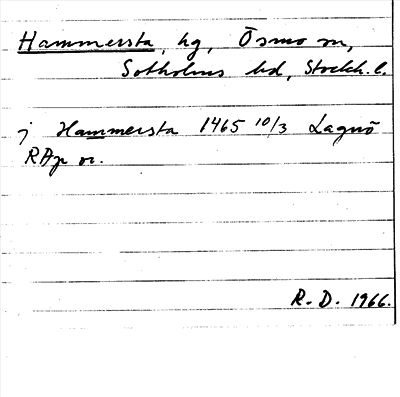 Hammersta, hg, Ösmo sn,
Sotholms hd, Stockh. l.
j Hammersta 1465 10/3 Lagnö
RAp or.
R. D. 1966.